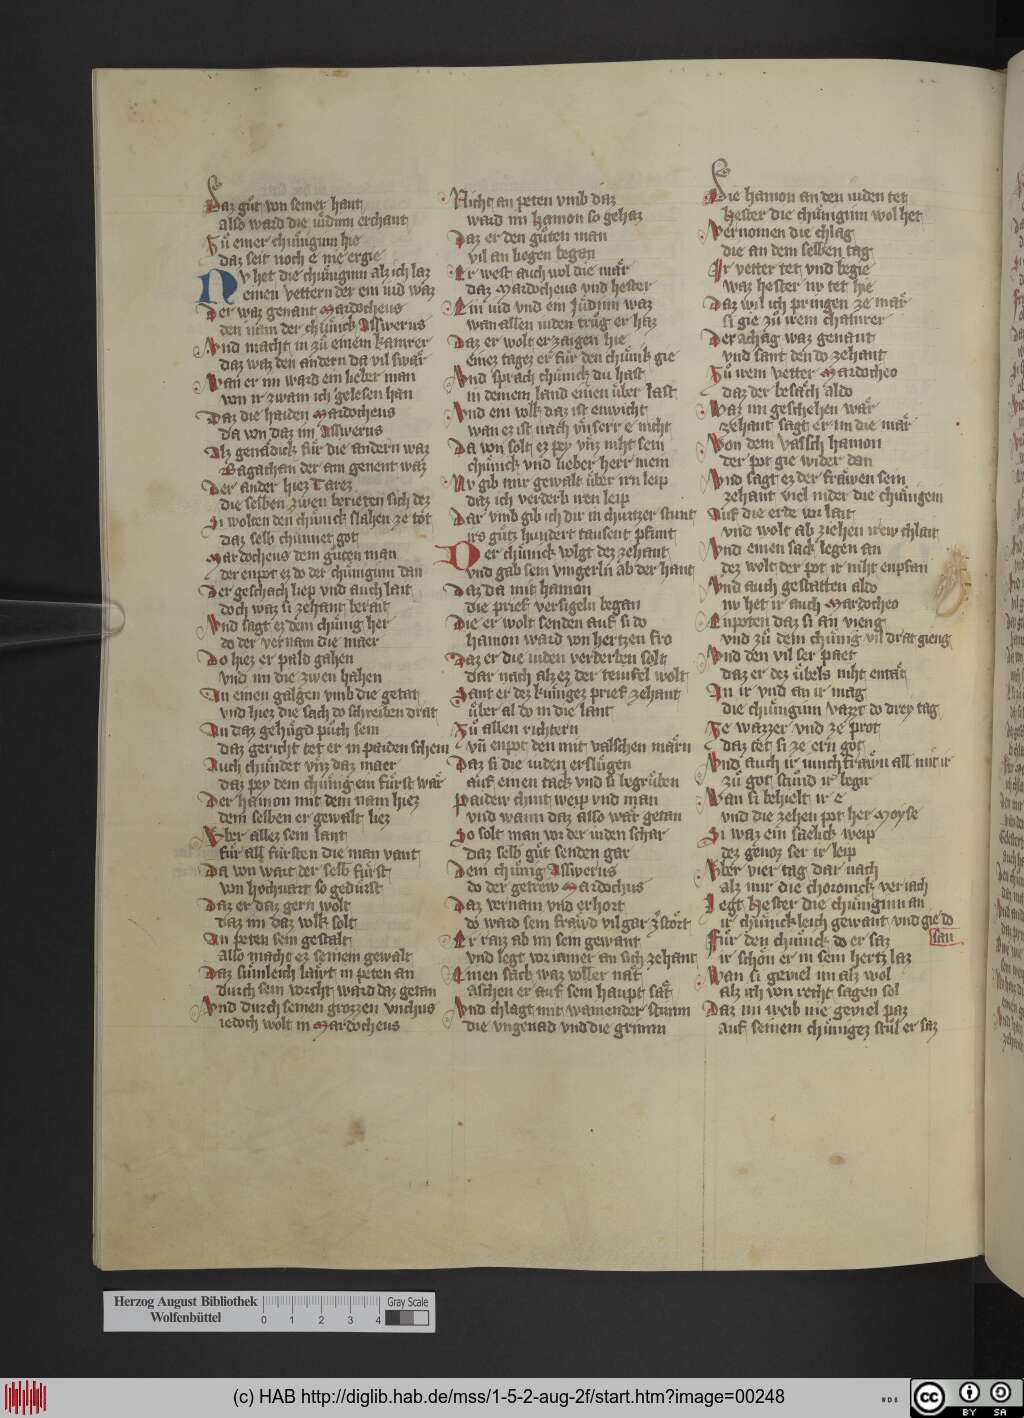 Daz gůt von seiner hant
also ward die iůdinn erchant
Zů einer chůnigunn hie
daz seit noch e nie ergie
Nv het die chůnigunn alz ich laz
einen vettern der ein iud waz
Der waz genant Mardocheus
den nam der chůnick Asswerus
Vnd macht in zů einem kamrer
daz waz den andern da vil swar
Wan er im ward ein lieber man
von ir zwain ich gelesen han
Daz die haiden Mardocheus
da von daz im Asswerus
Alz genadick fůr die andern waz
Bagathan der ain genent waz
Der ander hiez Tarez
die selben zwen berieten sich dez
Si wolten den chůnick slahen ze tot
daz selb chunnet got
Mardocheus dem gůten man
der enpot ez do der chůnigunn dan
Der geschach liep vnd auch lait
doch waz si zehant berait
Vnd sagt ez dem chůnig her
do der vernam die maer
Do hiez er pald gahen
vnd im die zwen hahen
An einen galgen vmb die getat
vnd hiez die sach do schreiben drat
An daz gehůgd půch sein
daz gericht tet er in paiden schein
Auch chůndet vnz daz maer
daz pey dem chůnig ein fůrst wär
Der hamon mit dem nam hiez
dem selben er gewalt liez
Vber allez sein lant
fůr all fůrsten die man vant
Da von wart der selb fůrst
von hochuart so gedůrst
Daz er daz gern wolt
daz im daz volk solt
An peten sein gestalt
also macht ez seinem gewalt
Daz sůmleich lawt in peten an
durch sein vorcht ward daz getan
Vnd durch seinen grozzen vnchus
iedoch wolt in Mardocheus
Nicht an peten vmb daz
ward im hamon so gehaz
Daz er den gůten man
vil an liegen began
Er west auch wol die mär
daz Mardocheus vnd hester
Ein iud vnd ein Jůdinn waz
wan allen iuden trůg er haz
Daz er wolt erzaigen hie
einez tagez er fůr den chůnik gie
Vnd sprach chůnich du hast
in deinem land einen ůber last
Vnd ein volk daz ist enwicht
wan ez ist nach vnserr e nicht
Da von solt ez pey vnz niht sein
chůnick vnd lieber herr mein
Nv gib mir gewalt ůber irn leip
daz ich verderb iren leip
Dar vmb gib ich dir in churtzer stunt
irs gůtz hundert tausent pfunt
Der chůnick volgt dez zehant
vnd gab sein vingerlin ab der hant
Daz da mit hamon
die prief versigeln began
Die er wolt senden auf si do
hamon ward von hertzen fro
Daz er die iuden verderben solt
dar nach alz ez der teuifel wolt
Sant er dez kunigez prief zehant
ůber al do in die lant
Zů allen richtern
vn̄ enpot den mit valschen märn
Daz si die iuden erslůgen
auf einen tack vnd si begrůben
Paidew chint weip vnd man
vnd wann daz also wär getan
So solt man von der iuden schar
daz selb gůt senden gar
Dem chůnig Asswerus
do der getrew Mardochus
Daz vernam vnd erhort
do ward sein frawd vil gar zstort
Er raiz ab im sein gewant
vnd legt vor iamer an sich zehant
Einen sack waz voller nat
aschen er auf sein haupt sät
Vnd chlagt mit wainender stimm
die vngenad vnd die grimm
Die hamon an den iuden tet
Hester die chůnigunn wol het
Vernomen die chlag
die an dem selben tag
Ir vetter tet vnd begie
waz hester nv tet hie
Daz wil ich pringen ze mär
si gie zů irem chamrer
Der achag waz genant
vnd sant den do zehant
Zů irem vetter Mardocheo
daz der besäch aldo
Waz im geschehen wär
zehant sagt er im die mär
Von dem valsch hamon
der pot gie wider dan
Vnd sagt ez der frawen sein
zehant viel nider die chůnigein
Auf die erde vor lait
vnd wolt ab ziehen irew chlait
Vnd einen sack legen an
dez wolt der pot ir niht enpfan
Vnd auch gestatten aldo
nv het ir auch Mardocheo
Enpoten daz si an vieng
vnd zů dem chůnig vil drat gieng
Vnd den vil ser paet
daz er dez ůbels niht entät
An ir vnd an ir mag
die chůnigunn vazzt do drey tag
Ze wazzer vnd ze prot
daz tet si ze ern got
Vnd auch ir iunchfrawn all mit ir
zů got stůnd ir begir
Wan si behielt ir e
vnd die zehen pot her Moyse
Si waz ein saelick weip
dez genoz ser ir leip
Vber vier tag dar nach
alz mir die choronick veriach
Legt Hester die chůnigunn an
ir chůnickleich gewant vnd gie do
san
Fůr den chůnick do er saz
ir schön er in sein hertz laz
Wan si geviel im alz wol
alz ich von recht sagen sol
Daz im weib nie geviel paz
auf seinem chůnigez stůl er saz
Herzog August Bibliothek
Wolfenbüttel
0 1 2 3 4
Gray Scale
(c) HAB http://diglib.hab.de/mss/1-5-2-aug-2f/start.htm?image=00248
WDB
cc
BY SA